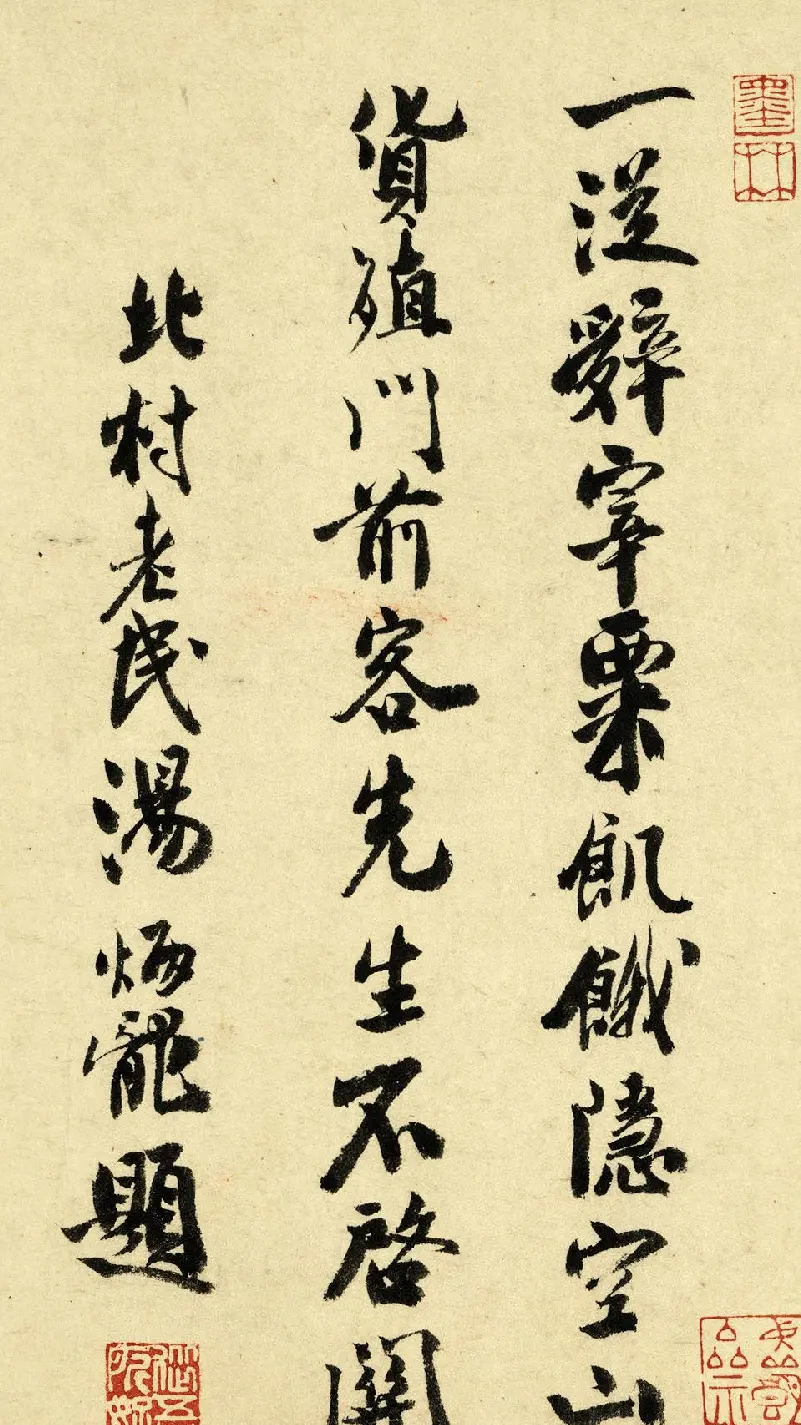 一從辭宰粟飢餓隱空山
貨殖門前客先生不啓關
北村老民湯炳龍題
墨林